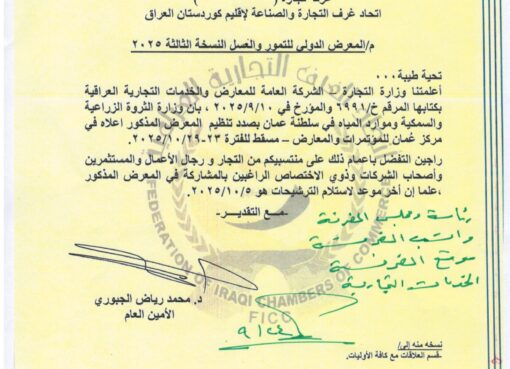 غرف تجارة / ( )
اتحاد غرف التجارة والصناعة لإقليم كوردستان العراق
م/المعرض الدولي للتمور والعسل النسخة الثالثة ٢٠٢٥
تحية طيبة٠٠٠
أعلمتنا وزارة التجارة - الشركة العامة للمعارض والخدمات التجارية العراقية
بكتابها المرقم خ/٦٩٩١ والمؤرخ في ٢٠٢٥/٩/١٠ ، بأن وزارة الثروة الزراعية
والسمكية وموارد المياه في سلطنة عمان بصدد تنظيم المعرض المذكور اعلاه في
مركز عمان للمؤتمرات والمعارض – مسقط للفترة ٢٣-٢٠٢٥/١٠/٢٩.
راجين التفضل باعمام ذلك على منتسبيكم من التجار و رجال الأعمال والمستثمرين
وأصحاب الشركات وذوي الاختصاص الراغبين بالمشاركة في المعرض المذكور
،علما إن أخر موعد لاستلام الترشيحات هو ٢٠٢٥/١٠/٥.
-مع التقدير-
رئاسة ومجلس الغرفة
موقع الغرفة
الخدمات التجارية
د. محمد رياض الجبوري
الأمين العام
FEDERATION OF IRAQI CHAMBERS OF COMMERCE
FICC
٩/٢٤
نسخه منه إلى/
-قسم العلاقات مع كافة الأوليات.